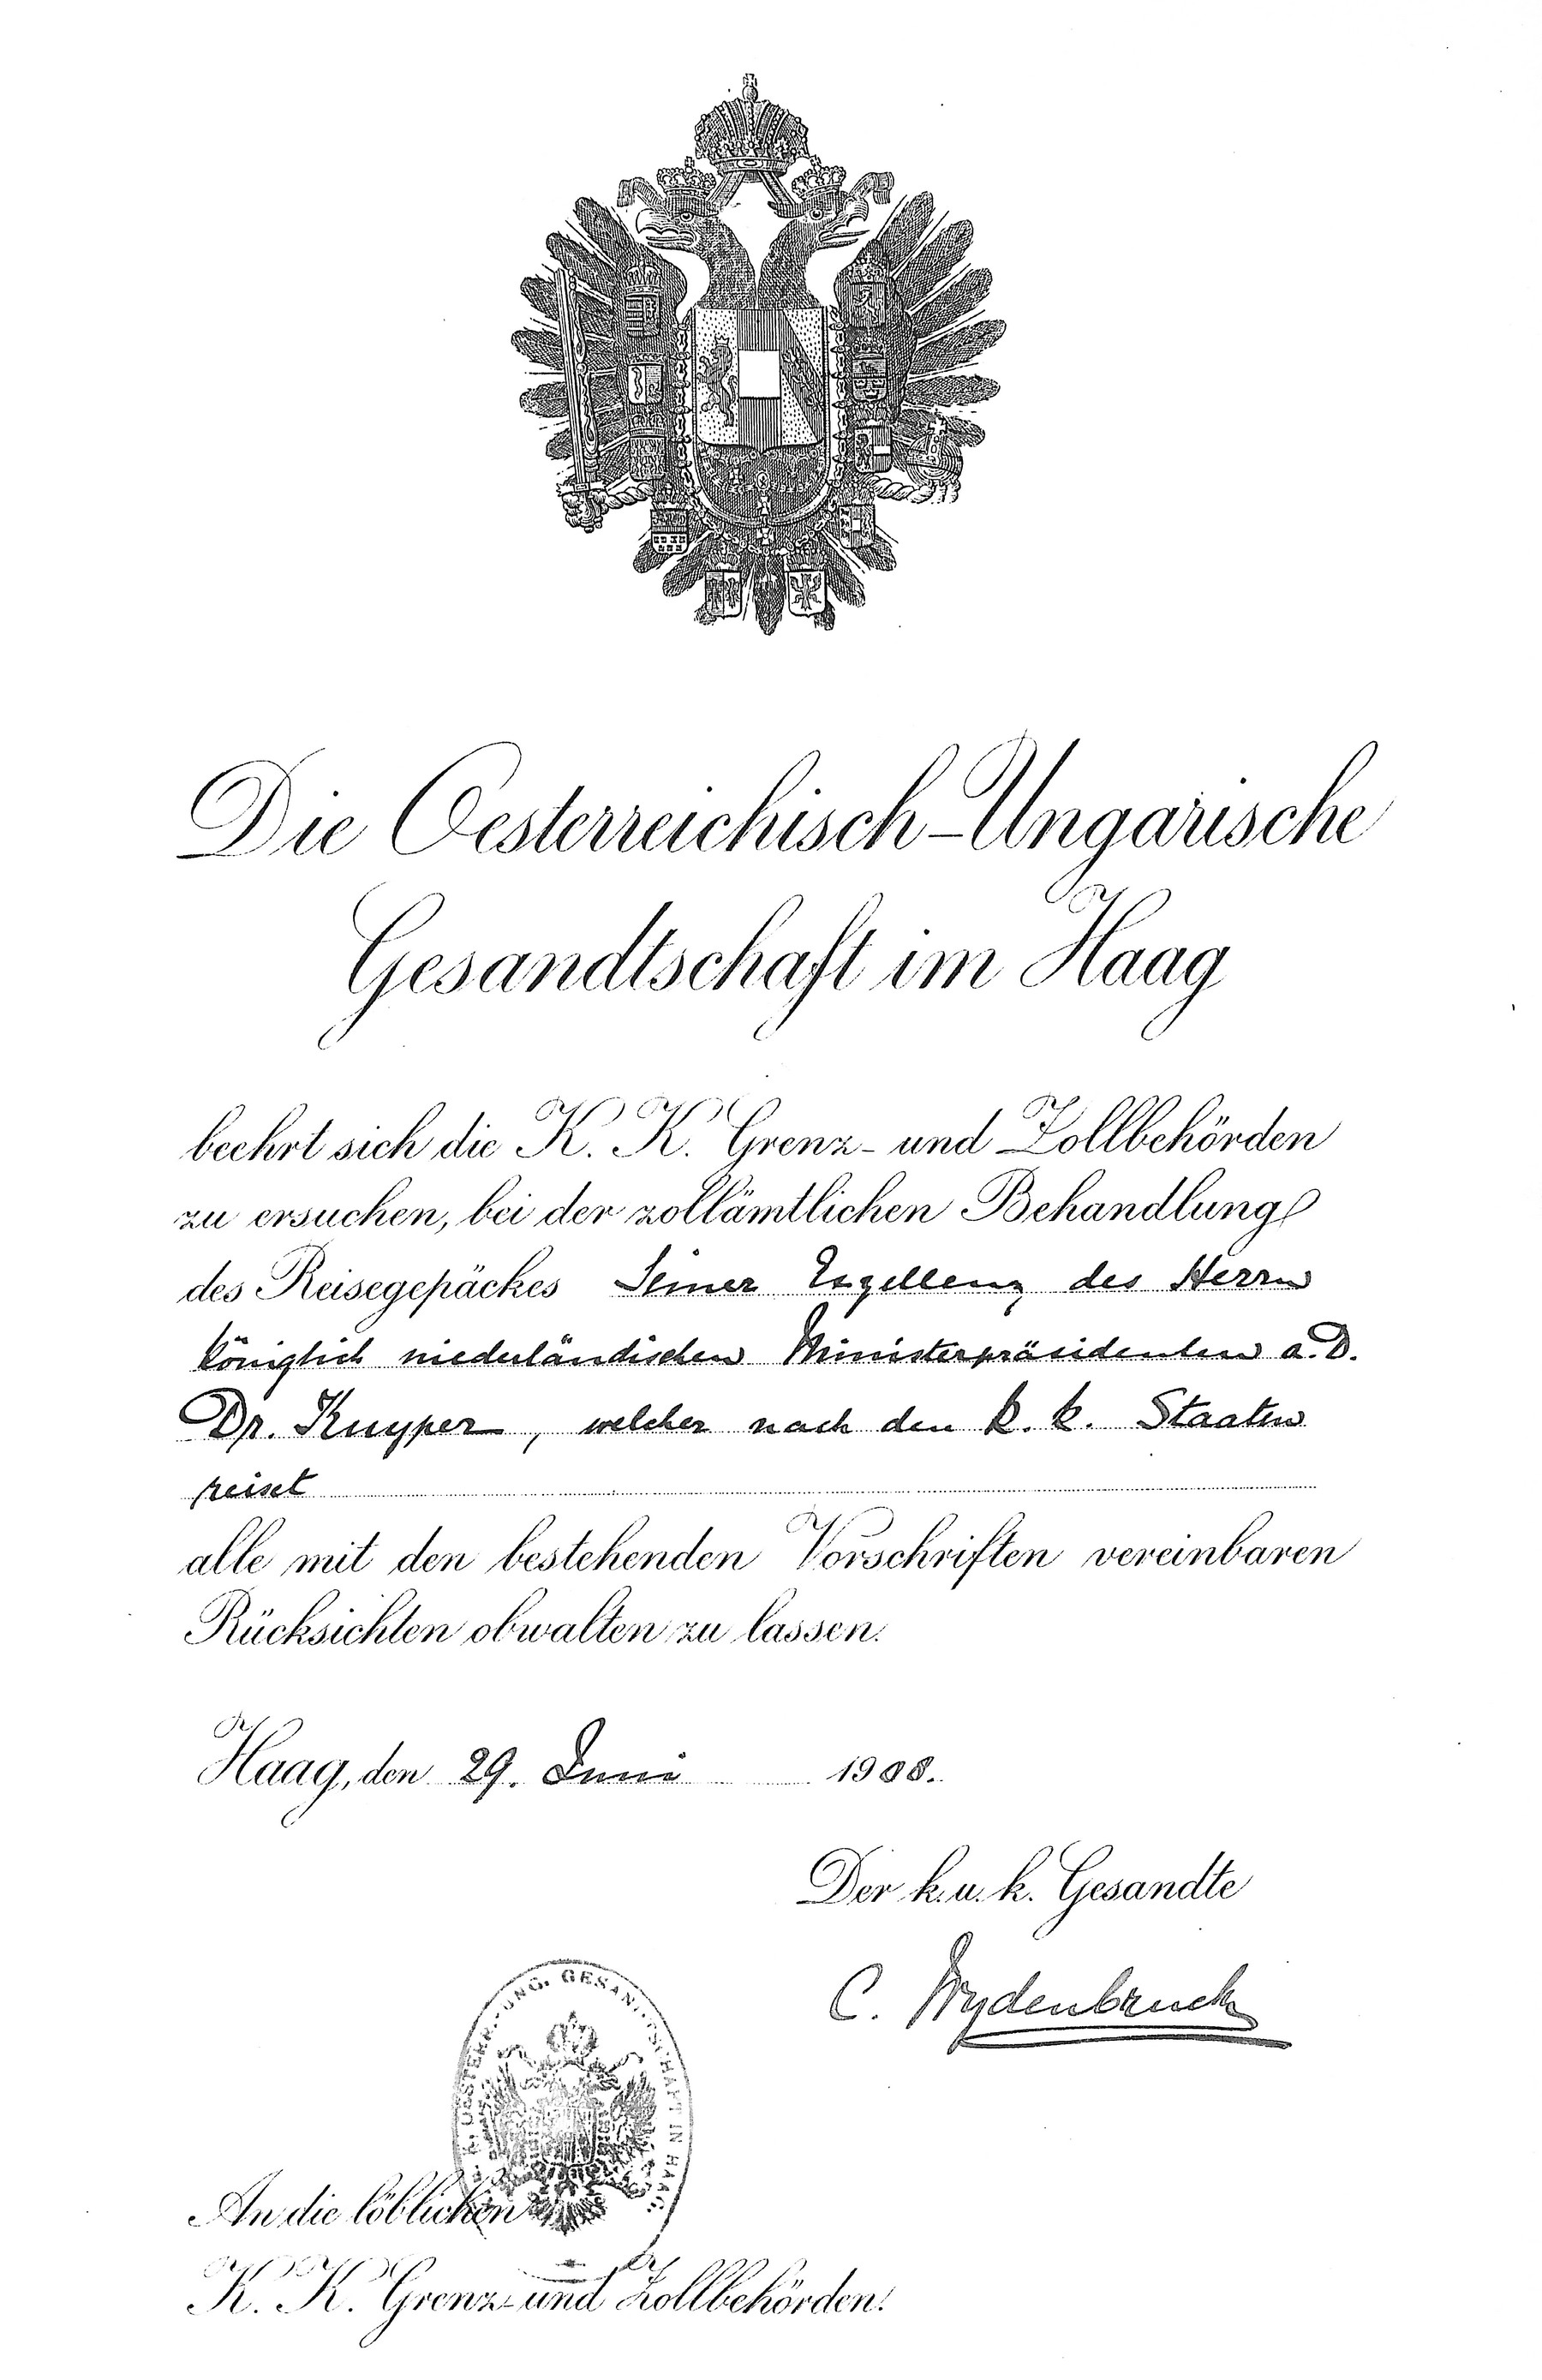 Die Oesterreichisch-Ungarische
Gesandtschaft im Haag
beehrt sich die K. K. Grenz- und Zollbehörden
zu ersuchen, bei der zollämtlichen Behandlung
des Reisegepäckes Seiner Exzellenz des Herrn
königlich niederländischen Ministerpräsidenten a. D.
Dr. Kuyper, welcher nach den k. k. Staaten
reiset
alle mit den bestehenden Vorschriften vereinbaren
Rücksichten obwalten zu lassen.
Haag, den 29. Juni 1908.
Der k. u. k. Gesandte
C. Wydenbruck
UNG. GESANDTSCHAFT IN HAAG
An die löblichen
K. K. Grenz- und Zollbehörden.